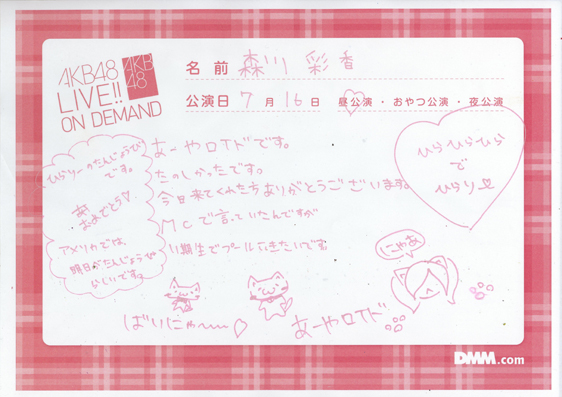 AKB48
LIVE!!
ON DEMAND
AKB
48
名前 森川 彩香
公演日 7月16日 昼公演・おやつ公演・夜公演
あーやロイドです。
たのしかったです。
今日来てくれたちありがとうございます。
MCで言っていたんですが
11期生でプール行きたいです。
ひらりーのたんじょうび
です。
おめでとう♡
アメリカでは、
明日がたんじょうび
らしいです。
ひらひらひら
で
ひらり
にゃあ
ばいにゃー
あーやロイド
DMM.com